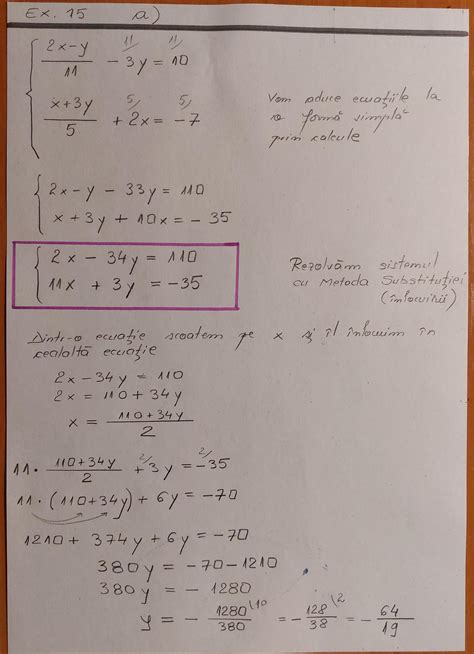 Ex. 15 a)
2x-y/11 - 3y = 10 (11/ 11/)
x+3y/5 + 2x = -7 (5/ 5/)
Vom aduce ecuațiile la
o formă simplă
prin calcule
2x - y - 33y = 110
x + 3y + 10x = - 35
2x - 34y = 110
11x + 3y = -35
Rezolvăm sistemul
cu Metoda Substituției
(înlocuirii)
Dintr-o ecuație scoatem pe x și îl înlocuim în
cealaltă ecuație
2x - 34y = 110
2x = 110 + 34y
x = 110+34y/2
11 · 110+34y/2 + 3y = -35 (2/ 2/)
11 · (110+34y) + 6y = -70
1210 + 374y + 6y = -70
380y = -70 - 1210
380y = - 1280
y = - 1280/380 (10 = - 128/38 (2 = - 64/19